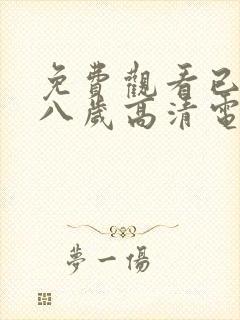 免費觀看已
八歲高清電
夢一傷